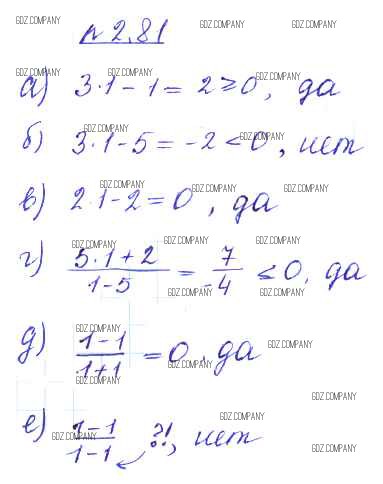 GDZ.COMPANY GDZ.COMPANY GDZ.COMPANY
n 2.81
GDZ.COMPANY GDZ.COMPANY GDZ.COMPANY
а) 3·1 - 1 = 2 ≥ 0, да
GDZ.COMPANY GDZ.COMPANY
б) 3·1 - 5 = -2 < 0, нет
GDZ.COMPANY GDZ.COMPANY GDZ.COMPANY
в) 2·1 - 2 = 0, да
GDZ.COMPANY GDZ.COMPANY GDZ.COMPANY
г) (5·1 + 2)/(1 - 5) = 7/-4 ≤ 0, да
GDZ.COMPANY GDZ.COMPANY
GDZ.COMPANY GDZ.COMPANY
д) (1 - 1)/(1 + 1) = 0, да
GDZ.COMPANY GDZ.COMPANY
GDZ.COMPANY
GDZ.COMPANY
е) (1 - 1)/(1 - 1) ?!, нет
GDZ.COMPANY GDZ.COMPANY